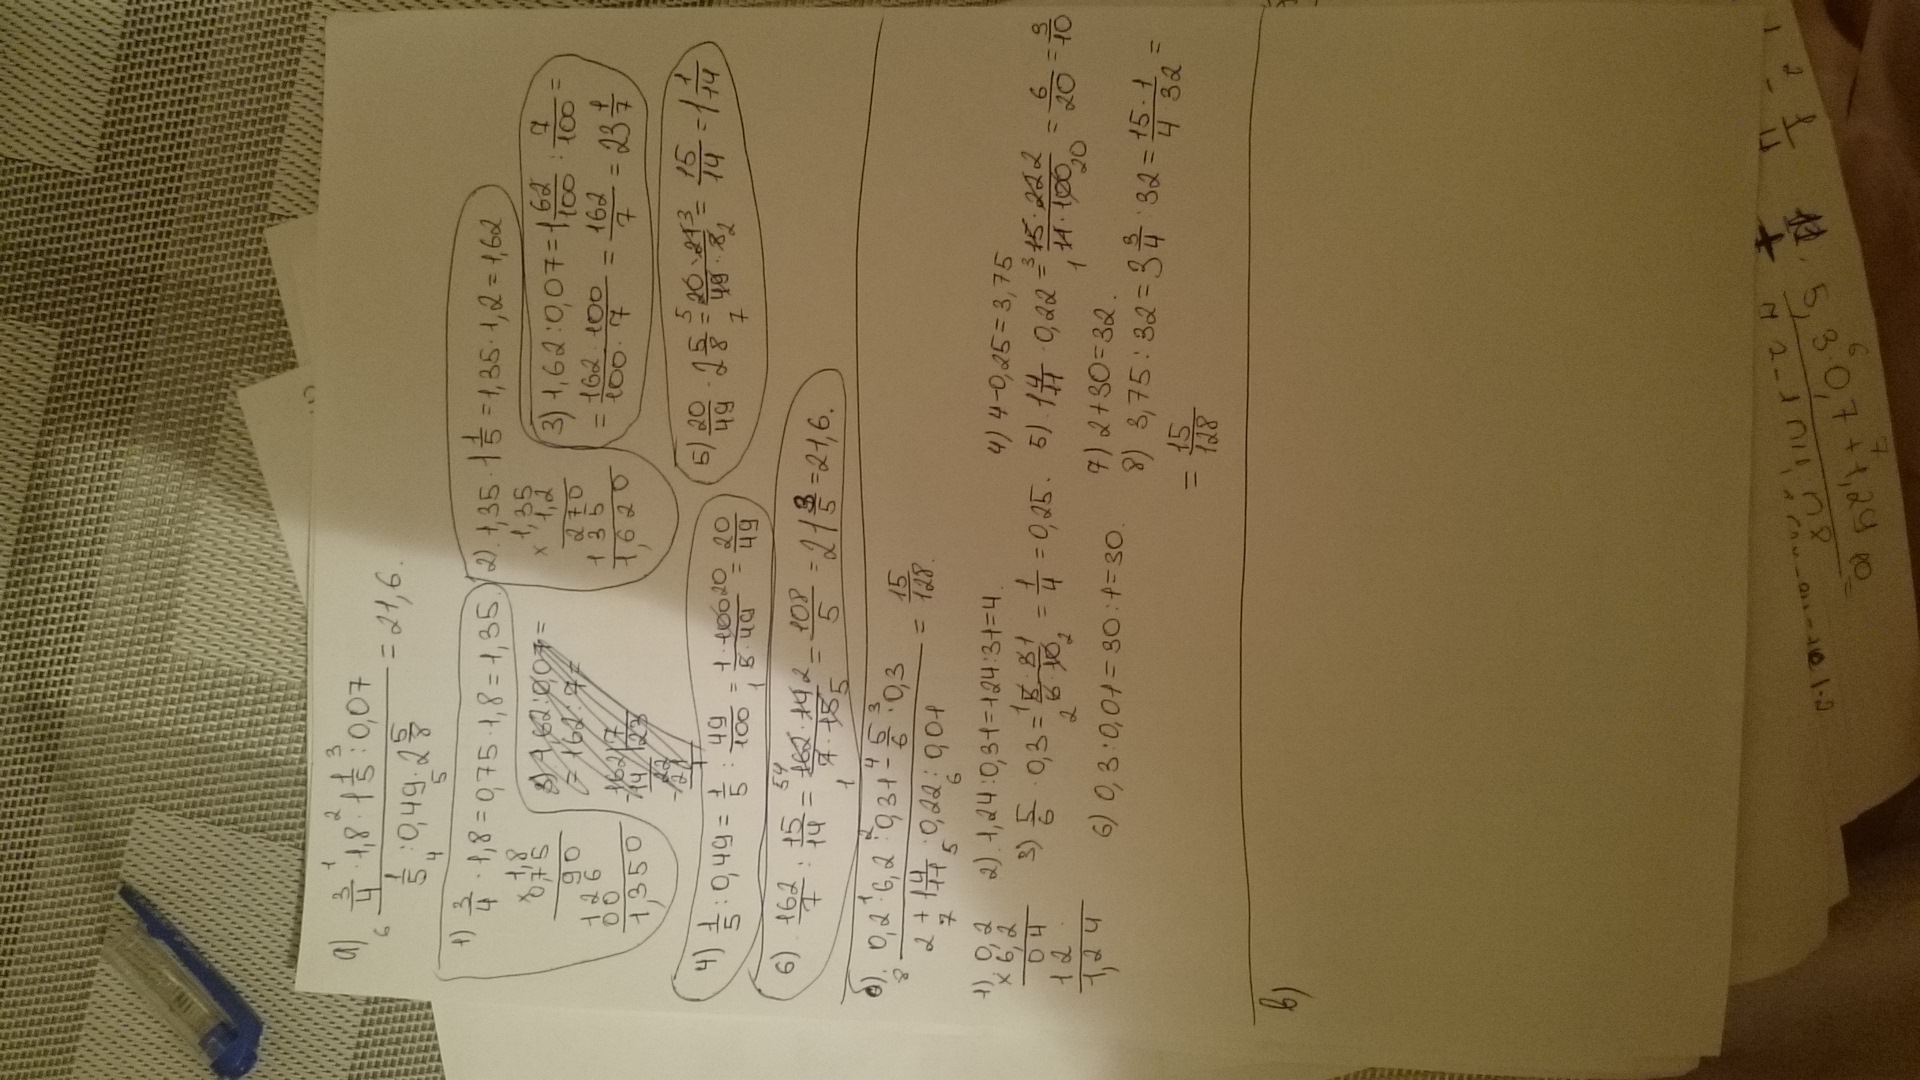 а) 3/4 · 1,8 · 1 1/5 : 0,07 / 1/5 : 0,49 · 2 5/8 = 21,6.
1) 3/4 · 1,8 = 0,75 · 1,8 = 1,35.
× 1,8
0,75
90
126
00
1,350
2) 1,35 · 1 1/5 = 1,35 · 1,2 = 1,62
× 1,35
1,2
270
135
1,620
3) 1,62 : 0,07 =
= 162 : 7 =
3) 1,62 : 0,07 = 1 62/100 : 7/100 =
= 162 · 100 / 100 · 7 = 162/7 = 23 1/7
4) 1/5 : 0,49 = 1/5 : 49/100 = 1 · 100 20 / 5 · 49 = 20/49
5) 20/49 · 2 5/8 = 20 · 21 / 49 · 8 = 15/14 = 1 1/14
6) 162/7 : 15/14 = 162 · 14 2 / 7 · 15 5 = 108/5 = 21 3/5 = 21,6.
б) 0,2 · 6,2 : 0,31 - 5/6 · 0,3 / 2 + 1 4/11 · 0,22 : 0,01 = 15/128.
1) 0,2
× 6,2
04
12
1,24
2) 1,24 : 0,31 = 124 : 31 = 4.
3) 5/6 · 0,3 = 5 · 3 / 6 · 10 = 1/4 = 0,25.
4) 4 - 0,25 = 3,75
5) 1 4/11 · 0,22 = 15 · 22 2 / 11 · 100 = 6/20 = 3/10
6) 0,3 : 0,01 = 30 : 1 = 30.
7) 2 + 30 = 32.
8) 3,75 : 32 = 3 3/4 : 32 = 15 · 1 / 4 32 =
= 15/128
в)